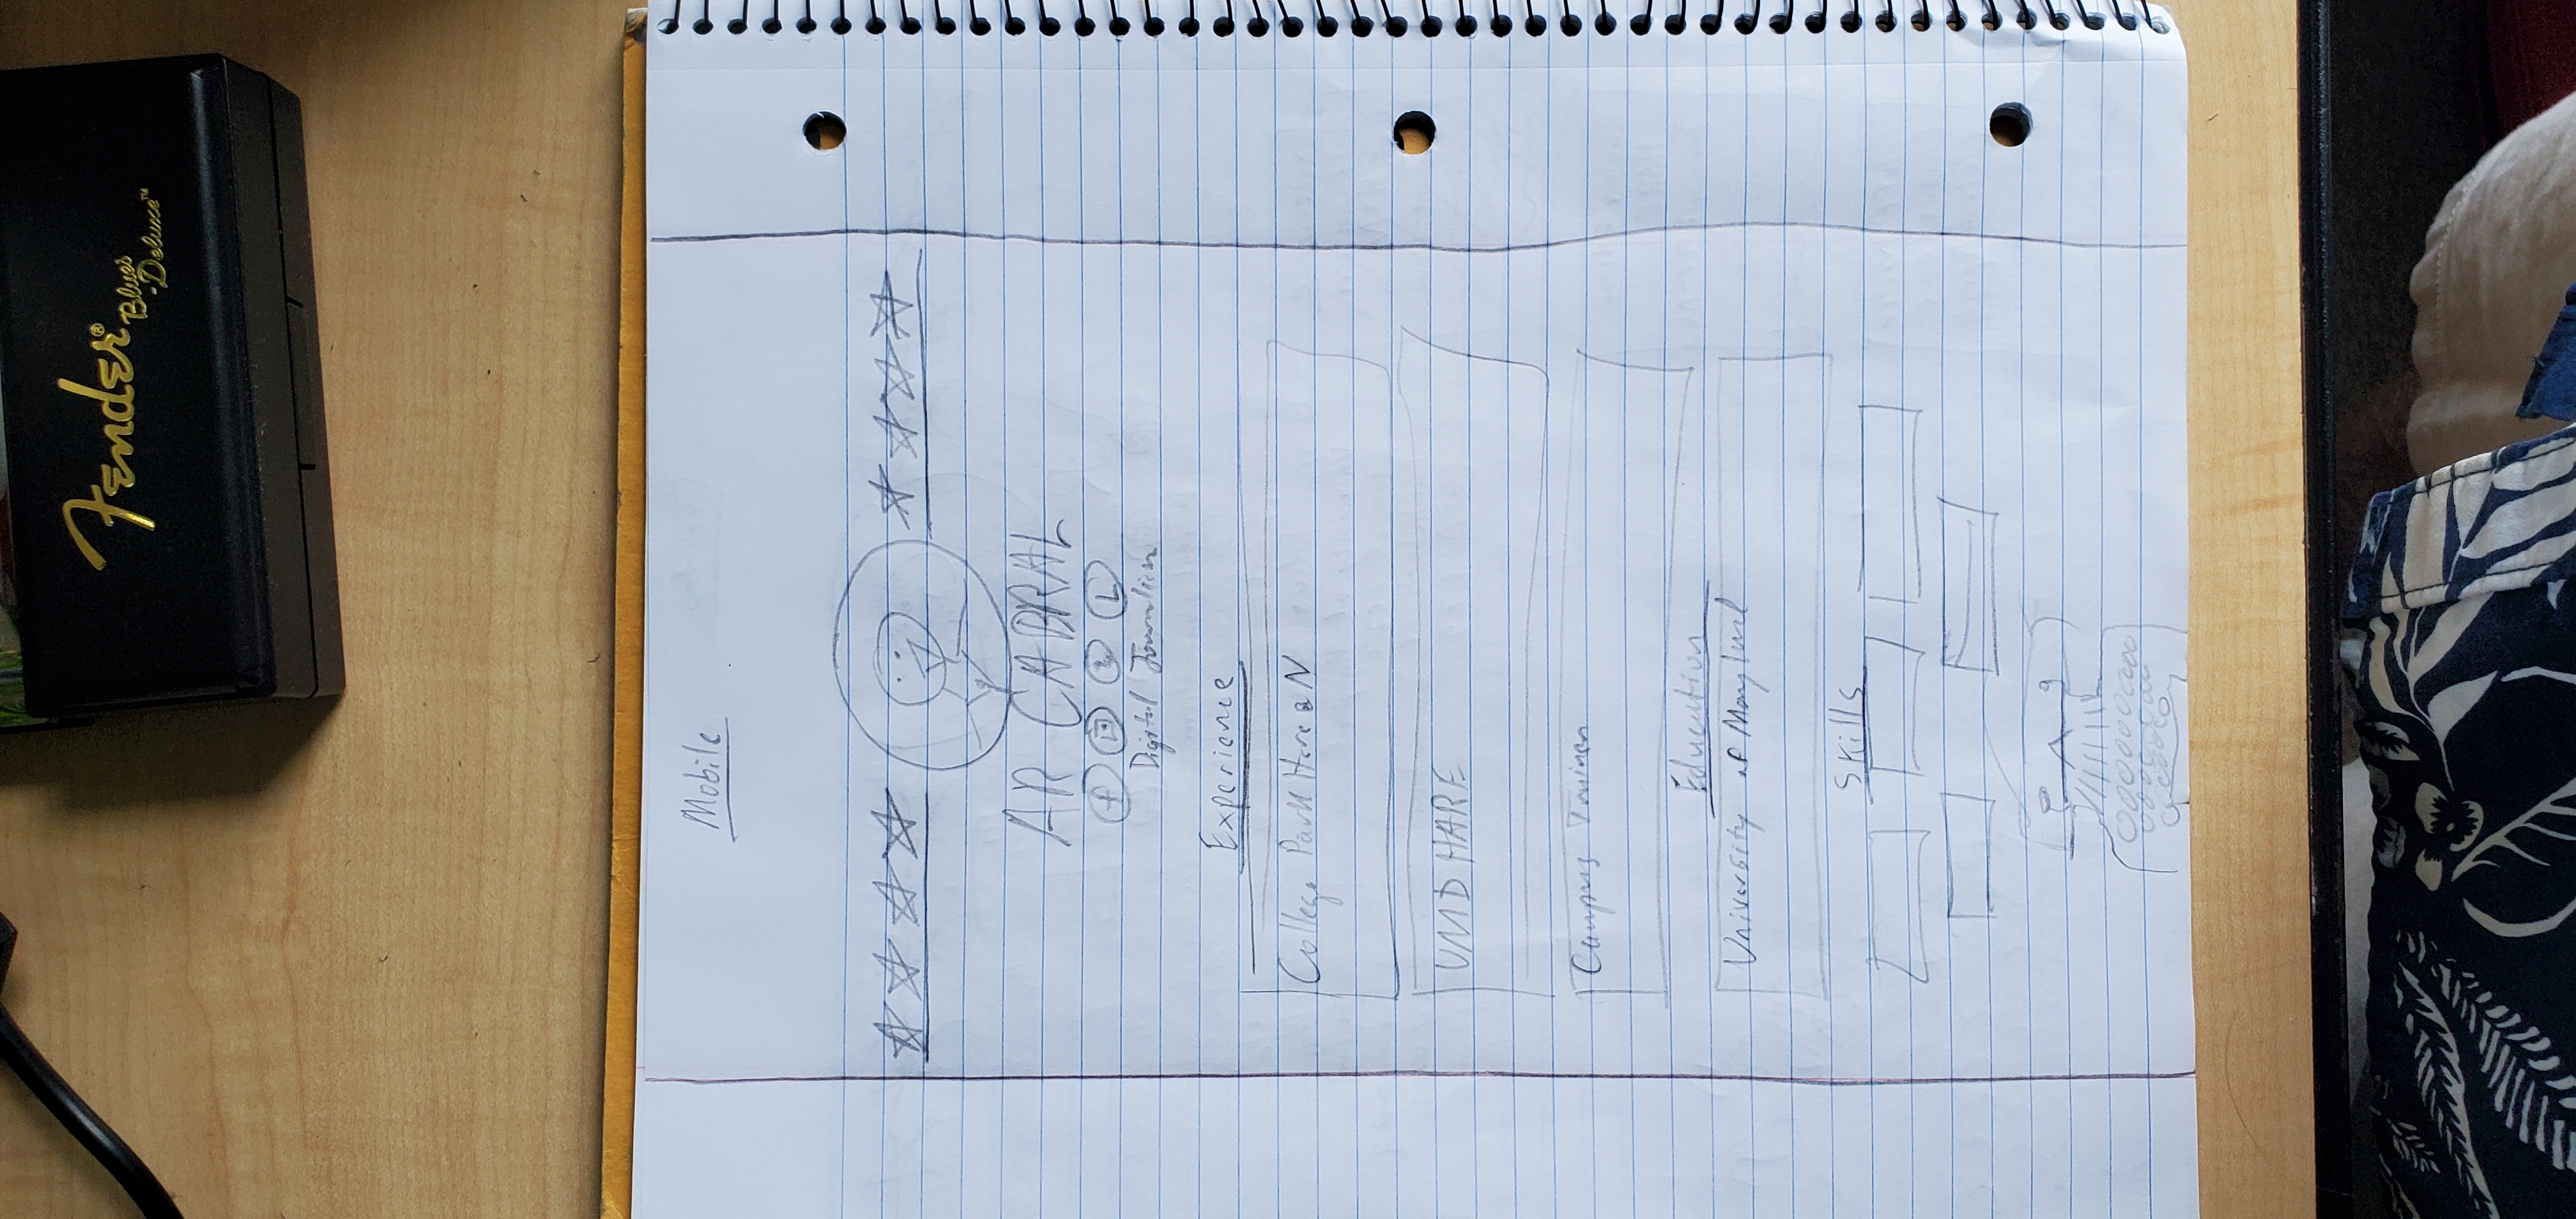 Fender®
Blues
Deluxe™
Mobile
AR CABRAL
f L
Digital Journalism
Experience
College Park Here & N
UMD HARE
Campus Trainer
Education
University of Maryland
Skills